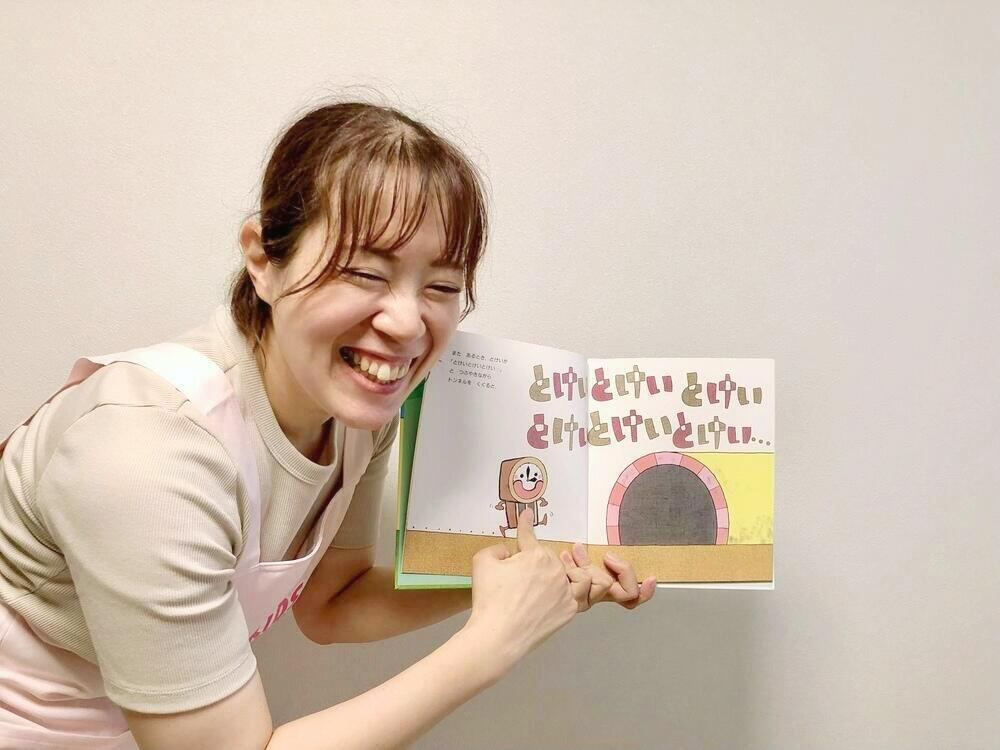 また あるとき、とけいが
「とけいとけいとけい…」
と つぶやきながら
トンネルを くぐると、
とけいとけい とけい
とけいとけい とけい…